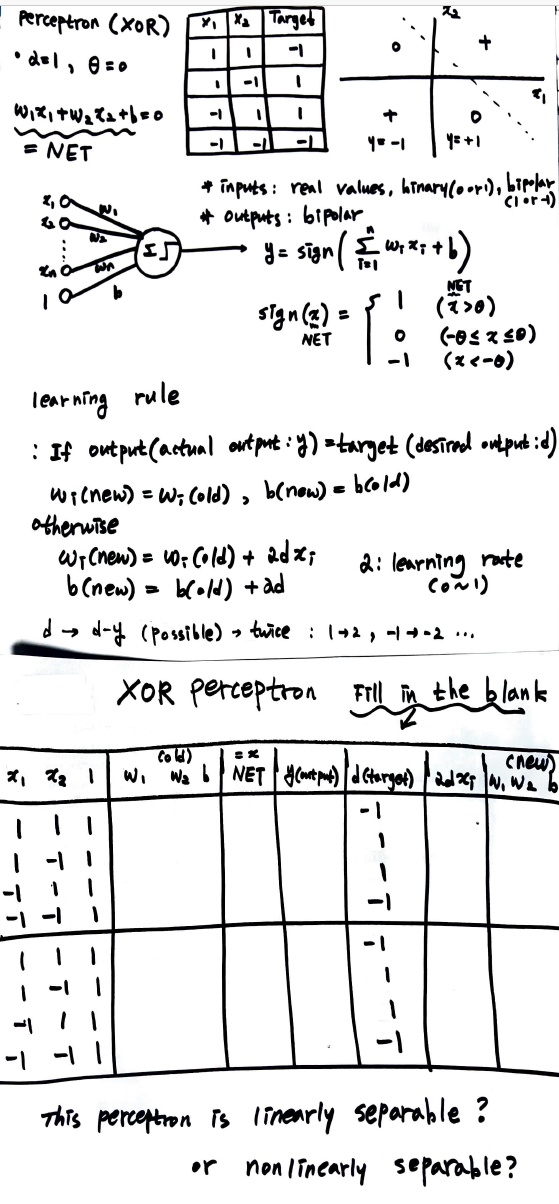 perceptron (XOR)
• α=1, θ=0
w₁x₁+w₂x₂+b=0
= NET
x₁ x₂ Target
1 1 -1
1 -1 1
-1 1 1
-1 -1 -1
x₂
o +
x₁
+ o
y=-1 y=+1
* inputs: real values, binary(0 or 1), bipolar
(1 or -1)
* outputs: bipolar
x₁ w₁
x₂ w₂
xₙ wₙ
1 b
Σ
y = sign( Σ wᵢxᵢ + b )
n
i=1
sign(x) = { 1 (x>θ)
NET
0 (-θ ≤ x ≤ θ)
-1 (x<-θ)
NET
learning rule
: If output(actual output: y) = target (desired output: d)
wᵢ(new) = wᵢ(old), b(new) = b(old)
otherwise
wᵢ(new) = wᵢ(old) + αdxᵢ α: learning rate
b(new) = b(old) + αd (0~1)
d → d-y (possible) → twice : 1→2, -1→-2 ...
XOR perceptron Fill in the blank
x₁ x₂ 1 (old) w₁ w₂ b =x NET y(output) d(target) αdxᵢ (new) w₁ w₂ b
1 1 1 -1
1 -1 1 1
-1 1 1 1
-1 -1 1 -1
1 1 1 -1
1 -1 1 1
-1 1 1 1
-1 -1 1 -1
This perceptron is linearly separable?
or nonlinearly separable?